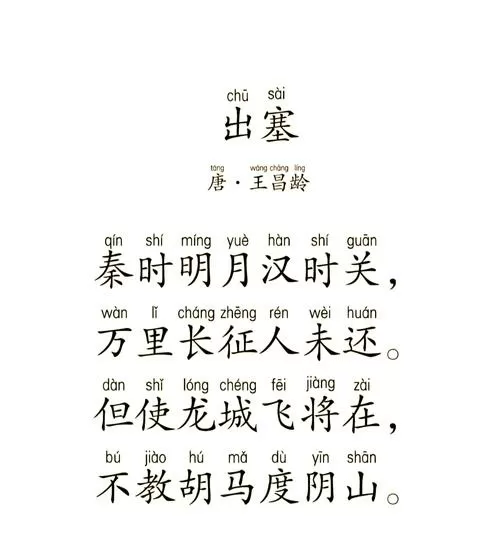 chū sài
出塞
táng wáng chāng líng
唐·王昌龄
qín shí míng yuè hàn shí guān
秦时明月汉时关，
wàn lǐ cháng zhēng rén wèi huán
万里长征人未还。
dàn shǐ lóng chéng fēi jiàng zài
但使龙城飞将在，
bú jiào hú mǎ dù yīn shān
不教胡马度阴山。